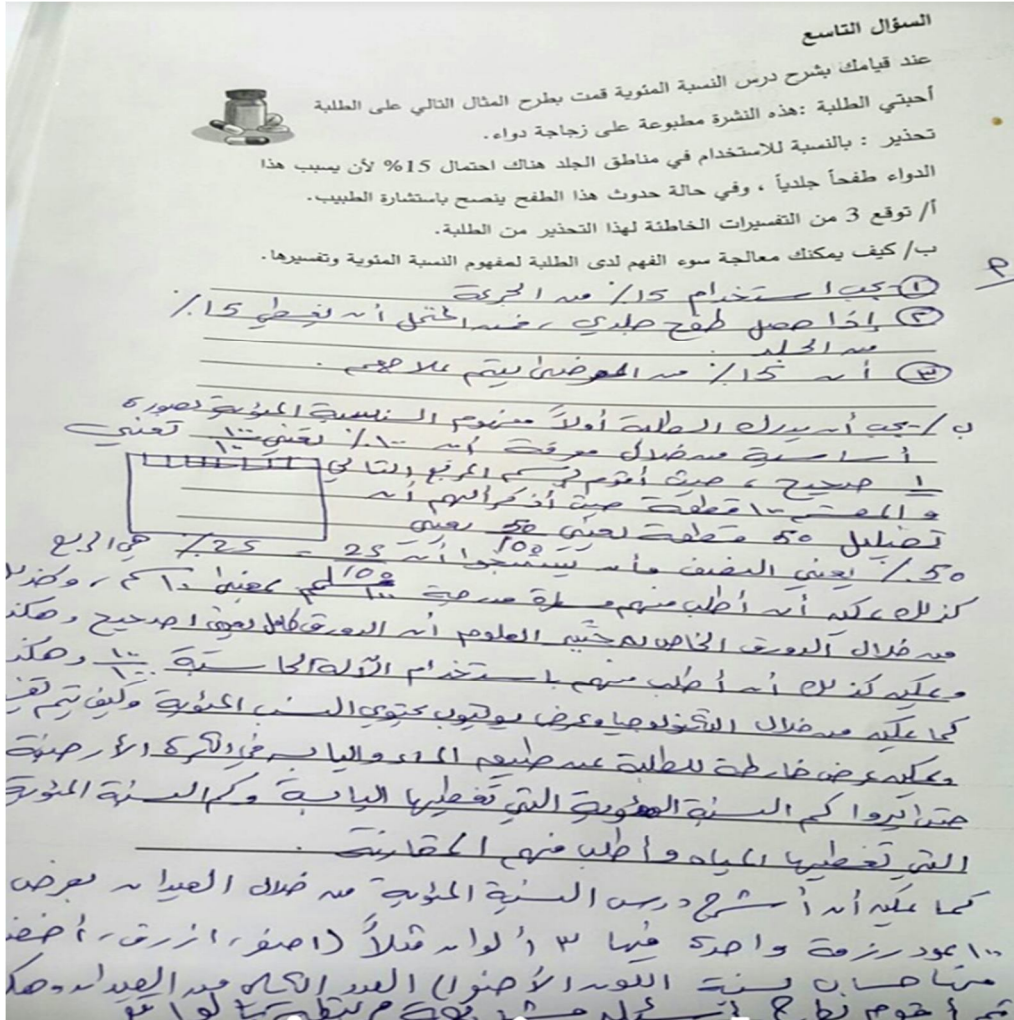 السؤال التاسع
عند قيامك بشرح درس النسبة المئوية قمت بطرح المثال التالي على الطلبة
أحبتي الطلبة :هذه النشرة مطبوعة على زجاجة دواء.
تحذير : بالنسبة للاستخدام في مناطق الجلد هناك احتمال 15% لأن يسبب هذا
الدواء طفحاً جلدياً ، وفي حالة حدوث هذا الطفح ينصح باستشارة الطبيب.
أ/ توقع 3 من التفسيرات الخاطئة لهذا التحذير من الطلبة.
ب/ كيف يمكنك معالجة سوء الفهم لدى الطلبة لمفهوم النسبة المئوية وتفسيرها.
م
① يجب استخدام 15٪ من الجرعة
② إذا حصل طفح جلدي ، فمن المحتمل أن يغطي 15٪
من الجلد .
③ أن 15٪ من المرضى يتم علاجهم .
ب/ - يجب أن يدرك الطلبة أولاً مفهوم النسبة المئوية بصورة
أساسية من خلال معرفة أن ١٠٠٪ تعني ١٠٠/١٠٠ تعني
١ صحيح ، حيث أقوم برسم المربع التالي
والمقسم ١٠٠ قطعة حيث أذكر لهم أن
تظليل 50 قطعة يعني 50/100 يعني
50٪ يعني النصف وأن يستنتجوا أن 25/100 = 25٪ هي الربع
كذلك يمكن أن أطلب منهم مسطرة مدرجة ١٠٠ سم بمعنى ١٠٠ سم ، وكذلك
من خلال الدورق الخاص العلوم أن الدورق كامل يعني ١ صحيح وهكذ
ويمكن كذلك أن أطلب منهم باستخدام الآلة الحاسبة ١٠٠/١٠٠ وهكذ
كما يمكن من خلال التكنولوجيا وعرض يوتيوب يحتوي النسب المئوية وكيف يتم
ويمكن عرض خارطة للطلبة عن طبيعة الماء واليابسة في الكرة الأرضية
كم النسبة المئوية التي تغطيها اليابسة وكم النسبة المئوية
التي تغطيها المياه وأطلب منهم المقارنة .
كما يمكن أن أشرح درس النسبة المئوية من خلال العيدان بعرض
١٠٠ عود رزمة واحدة فيها ٣ ألوان مثلاً (أصفر، أزرق، أخضر
منها حساب نسبة اللون الأصفر / العدد الكلي من العيدان وهك
ثم أقوم بطرح أسئلة